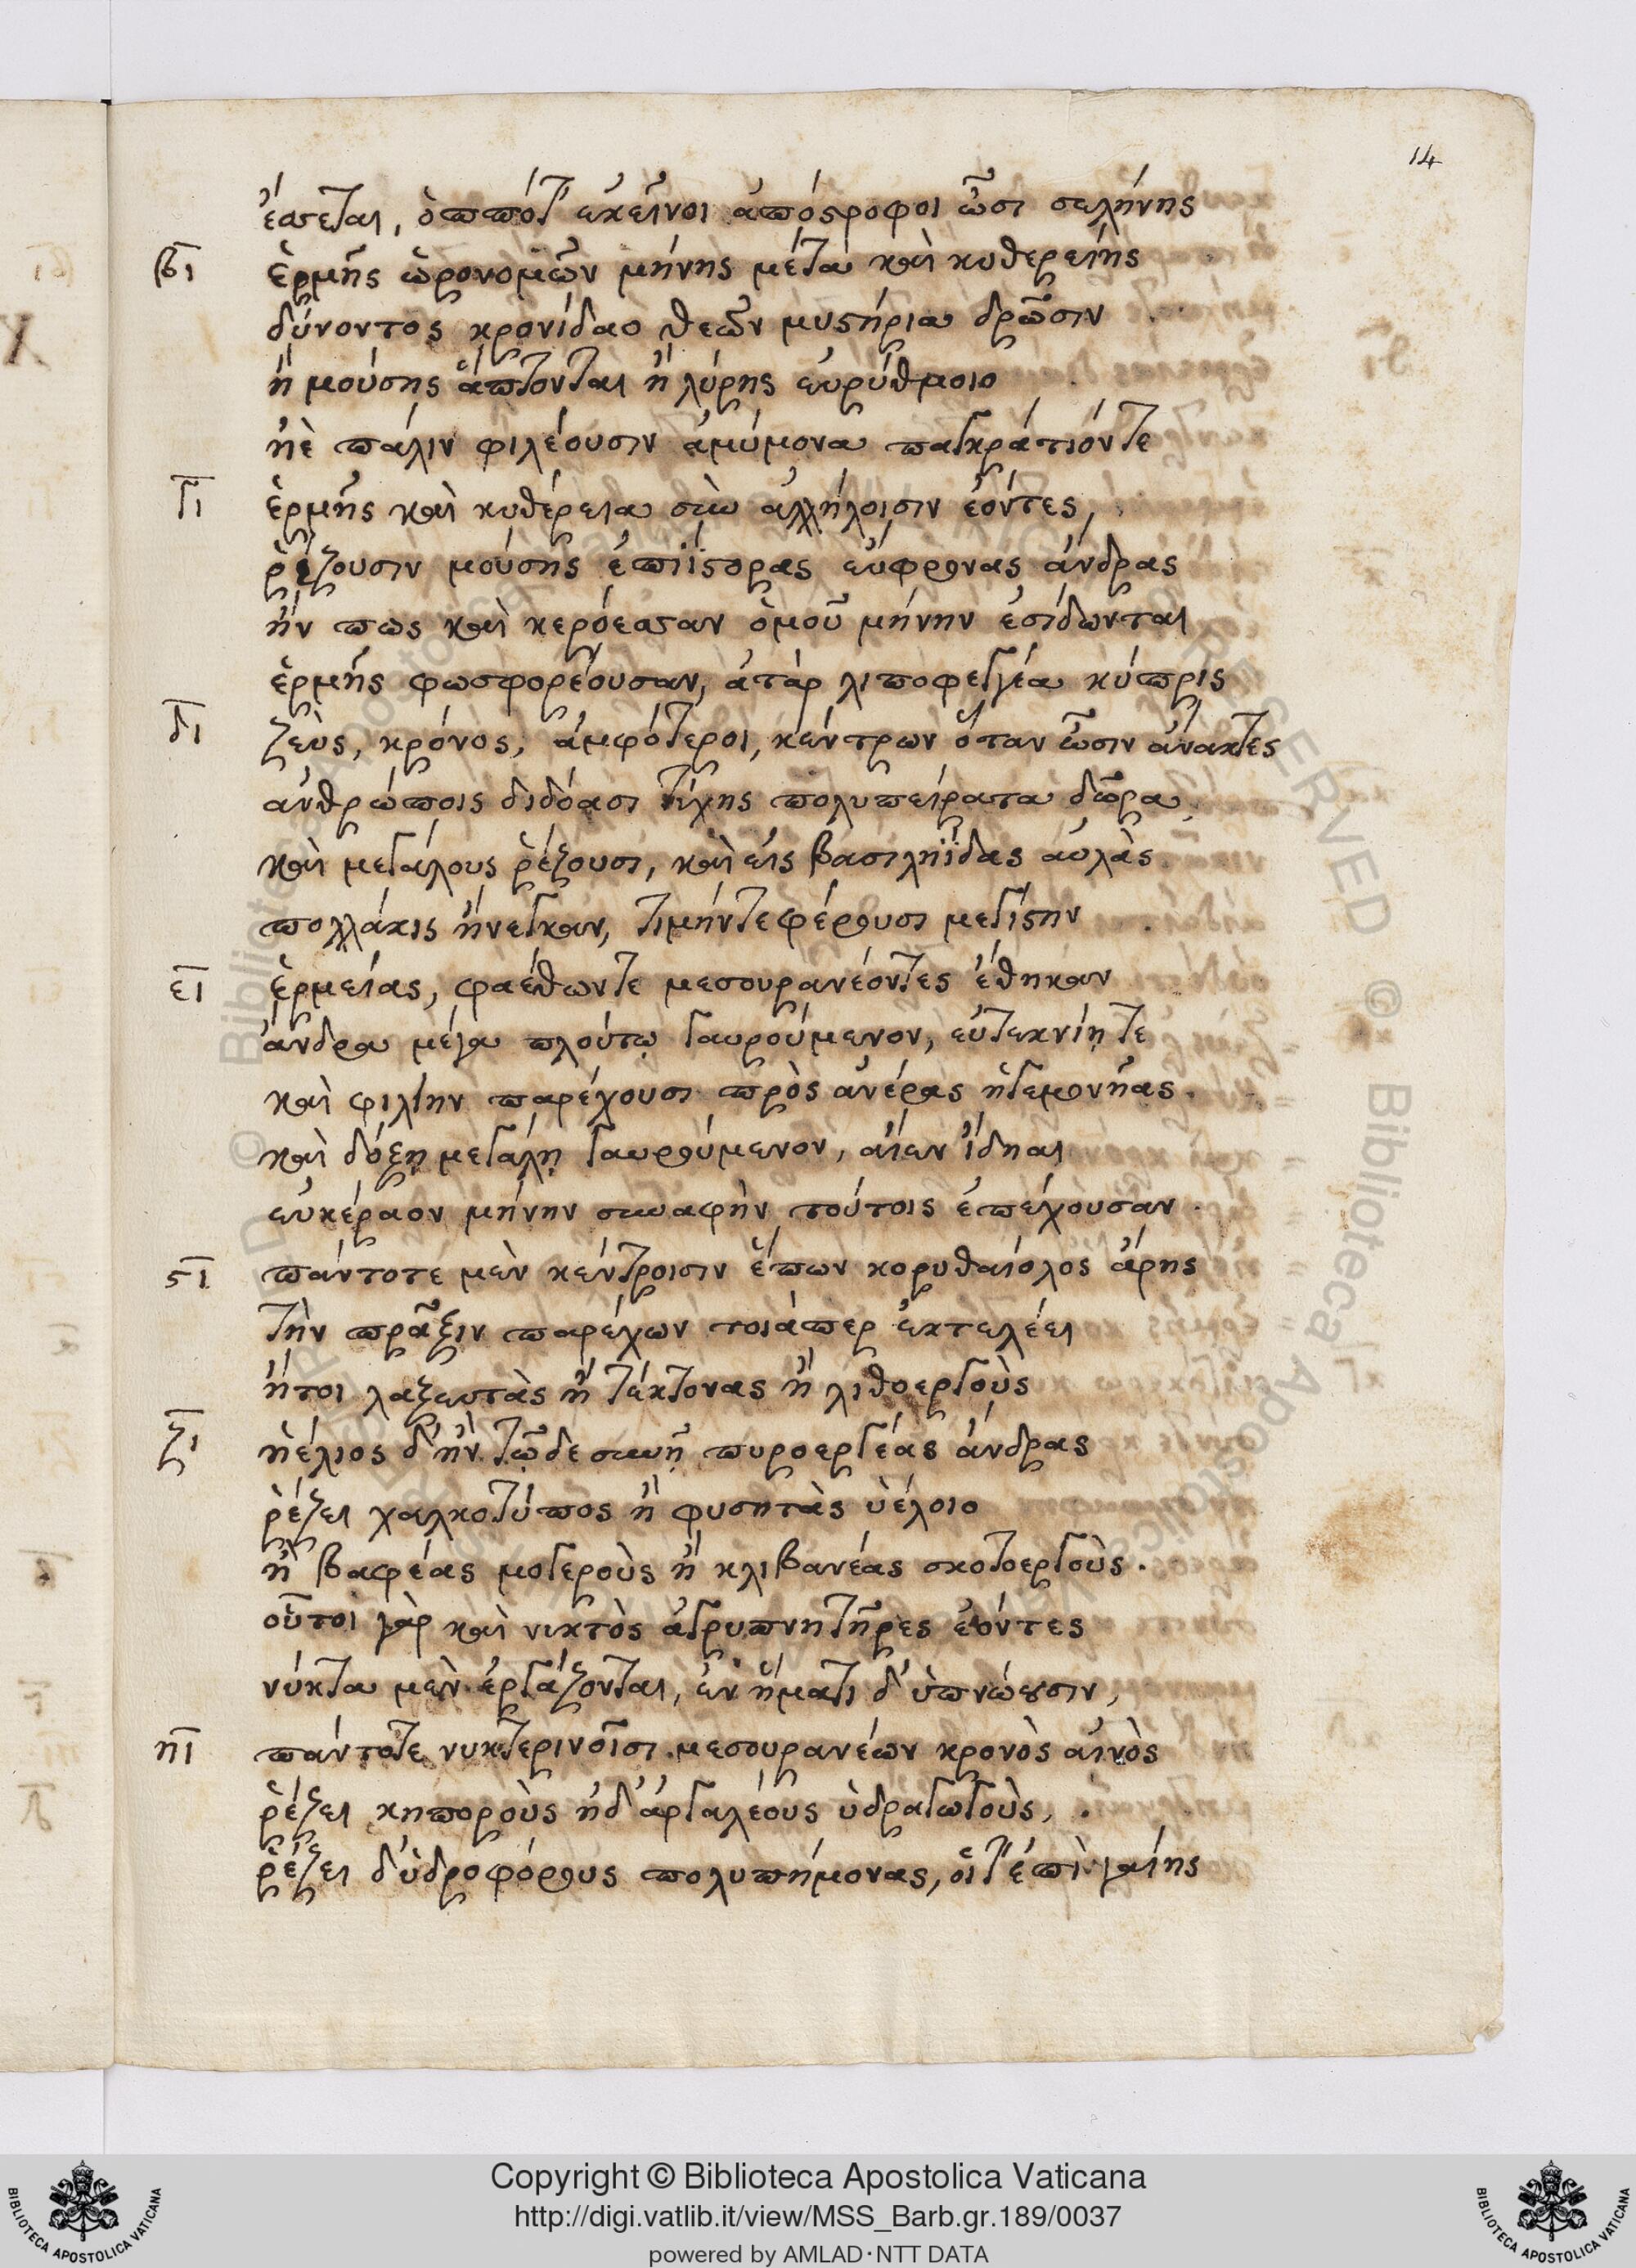 14
ἔσσεται, ὁππότ' ἐκεῖνοι ἀπόστροφοι ὦσι σελήνης
βι ἑρμῆς ὡρονομῶν μήνης μέτα καὶ κυθερείης
δύνοντος κρονίδαο θεῶν μυστήρια δρῶσιν
ἢ μούσης ἅπτονται ἢ λύρης εὐρύθμοιο
ἠὲ πάλιν φιλέουσιν ἀμύμονα παγκράτιόν τε
γι ἑρμῆς καὶ κυθέρεια σὺν ἀλλήλοισιν ἐόντες,
ῥέζουσιν μούσης ἐπιΐστορας εὔφρονας ἄνδρας
ἤν πως καὶ κερόεσσαν ὁμοῦ μήνην ἐσίδωνται
ἑρμῆς φωσφορέουσαν, ἀτὰρ λιποφεγγέα κύπρις
δι ζεὺς, κρόνος, ἀμφότεροι, κέντρων ὅταν ὦσιν ἄνακτες
ἀνθρώποις διδόασι τύχης πολυπείρατα δῶρα,
καὶ μεγάλους ῥέζουσι, καὶ εἰς βασιληΐδας αὐλὰς
πολλάκις ἤνεγκαν, τιμήν τε φέρουσι μεγίστην
ει ἑρμείας, φαέθων τε μεσουρανέοντες ἔθηκαν
ἄνδρα μέγα πλούτῳ γαυρούμενον, εὐτεκνίῃ τε
καὶ φιλίην παρέχουσι πρὸς ἀνέρας ἡγεμονῆας.
καὶ δόξῃ μεγάλῃ γαυρούμενον, αἰὲν ἴδηαι
εὐκέραον μήνην συναφὴν τούτοις ἐπέχουσαν.
ςι πάντοτε μὲν κέντροισιν ἕπων κορυθαίολος ἄρης
τὴν πρᾶξιν παρέχων τοιάπερ ἐκτελέει
ἤτοι λαξευτὰς ἢ τέκτονας ἢ λιθοεργοὺς
ζι ἠέλιος δ' ἢν τῷδε συνῇ πυροεργέας ἄνδρας
ῥέζει χαλκοτύπος ἢ φυσητὰς ὑέλοιο
ἢ βαφέας μογεροὺς ἢ κλιβανέας σκοτοεργοὺς.
οὗτοι γὰρ καὶ νυκτὸς ἀγρυπνητῆρες ἐόντες
νύκτα μὲν ἐργάζονται, ἐν ἤματι δ' ὑπνώουσιν,
ηι πάντοτε νυκτερινοῖσι μεσουρανέων κρονὸς αἰνὸς
ῥέζει κηποροὺς ἠδ' ἀργαλέους ὑδραγωγοὺς,
ῥέζει δ' ὑδροφόρους πολυπήμονας, οἵ τ' ἐπὶ γαίης
Copyright © Biblioteca Apostolica Vaticana
http://digi.vatlib.it/view/MSS_Barb.gr.189/0037
powered by AMLAD·NTT DATA
BIBLIOTECA APOSTOLICA VATICANA
BIBLIOTECA APOSTOLICA VATICANA